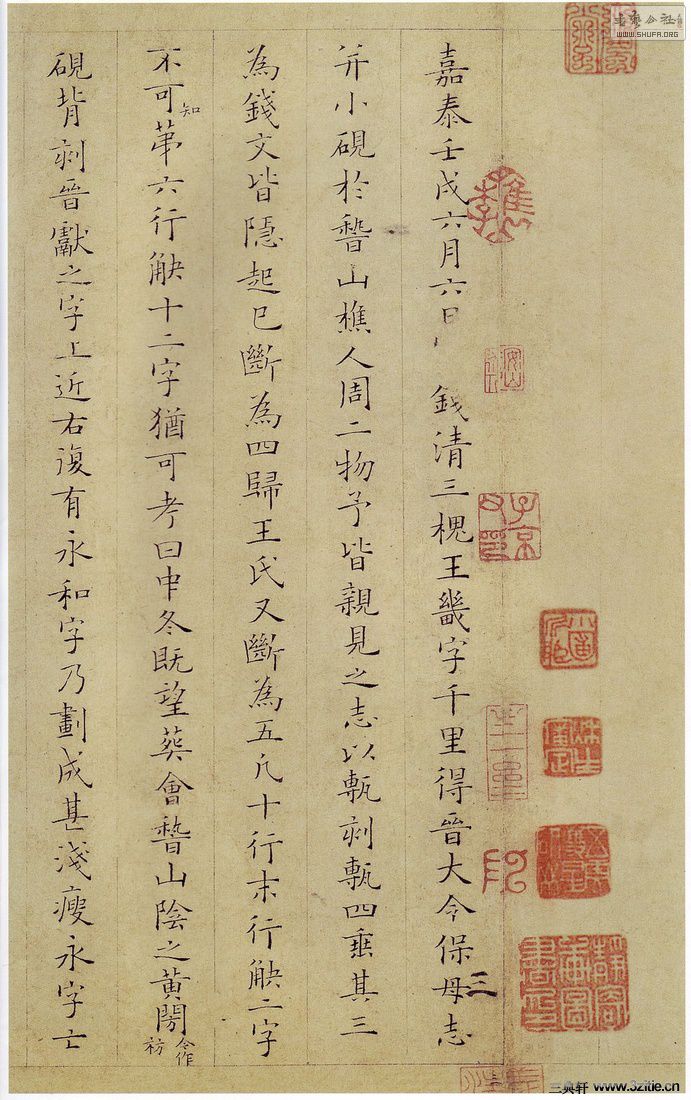 嘉泰壬戌六月六日 錢清三槐王畿字千里得晉大令保母志
三
并小硯於稽山樵人周二物予皆親見之志以甎刻甎四垂其三
為錢文皆隱起已斷為四歸王氏又斷為五凡十行末行缺二字
不可知第六行缺十二字猶可考曰中冬既望葬會稽山陰之黃閍
今作
祊
硯背刻晉獻之字上近右復有永和字乃劃成甚淺瘦永字亡
子京
WWW.SHUFA.ORG
三典轩 www.3zitie.cn